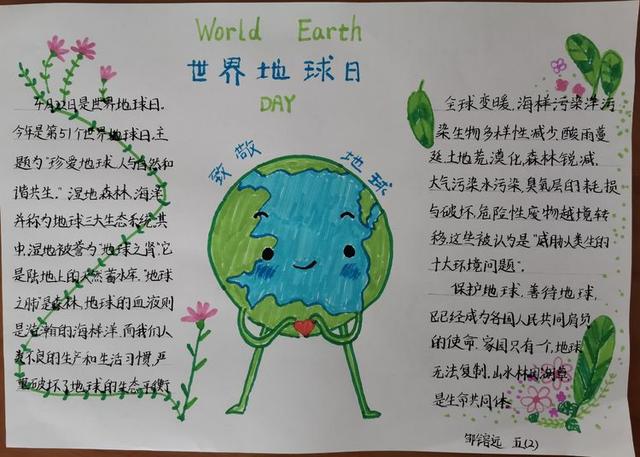 World Earth
世界地球日
DAY
致敬 地球
4月22日是世界地球日。
今年是第51个世界地球日,主
题为“珍爱地球,人与自然和
谐共生。”湿地森林,海洋
并称为地球三大生态系统,其
中,湿地被誉为“地球之肾”它
是陆地上的天然蓄水库。“地球
之肺”是森林,地球的血液则
是浩瀚的海林洋。而我们人
类不良的生产和生活习惯,严
重破坏了地球的生态平衡
全球变暖,海样污染洋污
染生物多样性减少,酸雨蔓
延土地荒漠化,森林锐减,
大气污染水污染,臭氧层的耗损
与破坏,危险性废物越境转
移,这些被认为是“威胁人类生的
十大环境问题”。
保护地球,善待地球,
已已经成为各国人民共同肩负
的使命,家园只有一个,地球
无法复制,山水林田湖草
是生命共同体
五(2)